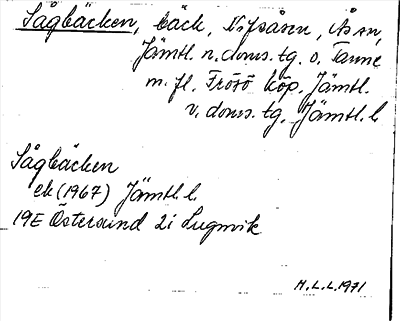 Sågbäcken, bäck, Kifsåsen, Ås sn,
Jämtl. n. doms. tg. o. Tanne
m. fl. Frösö köp. Jämtl.
v. doms. tg. Jämtl. l
Sågbäcken
ek (1967) Jämtl. l.
19E Östersund 2i Lugnvik
H.L.L. 1971